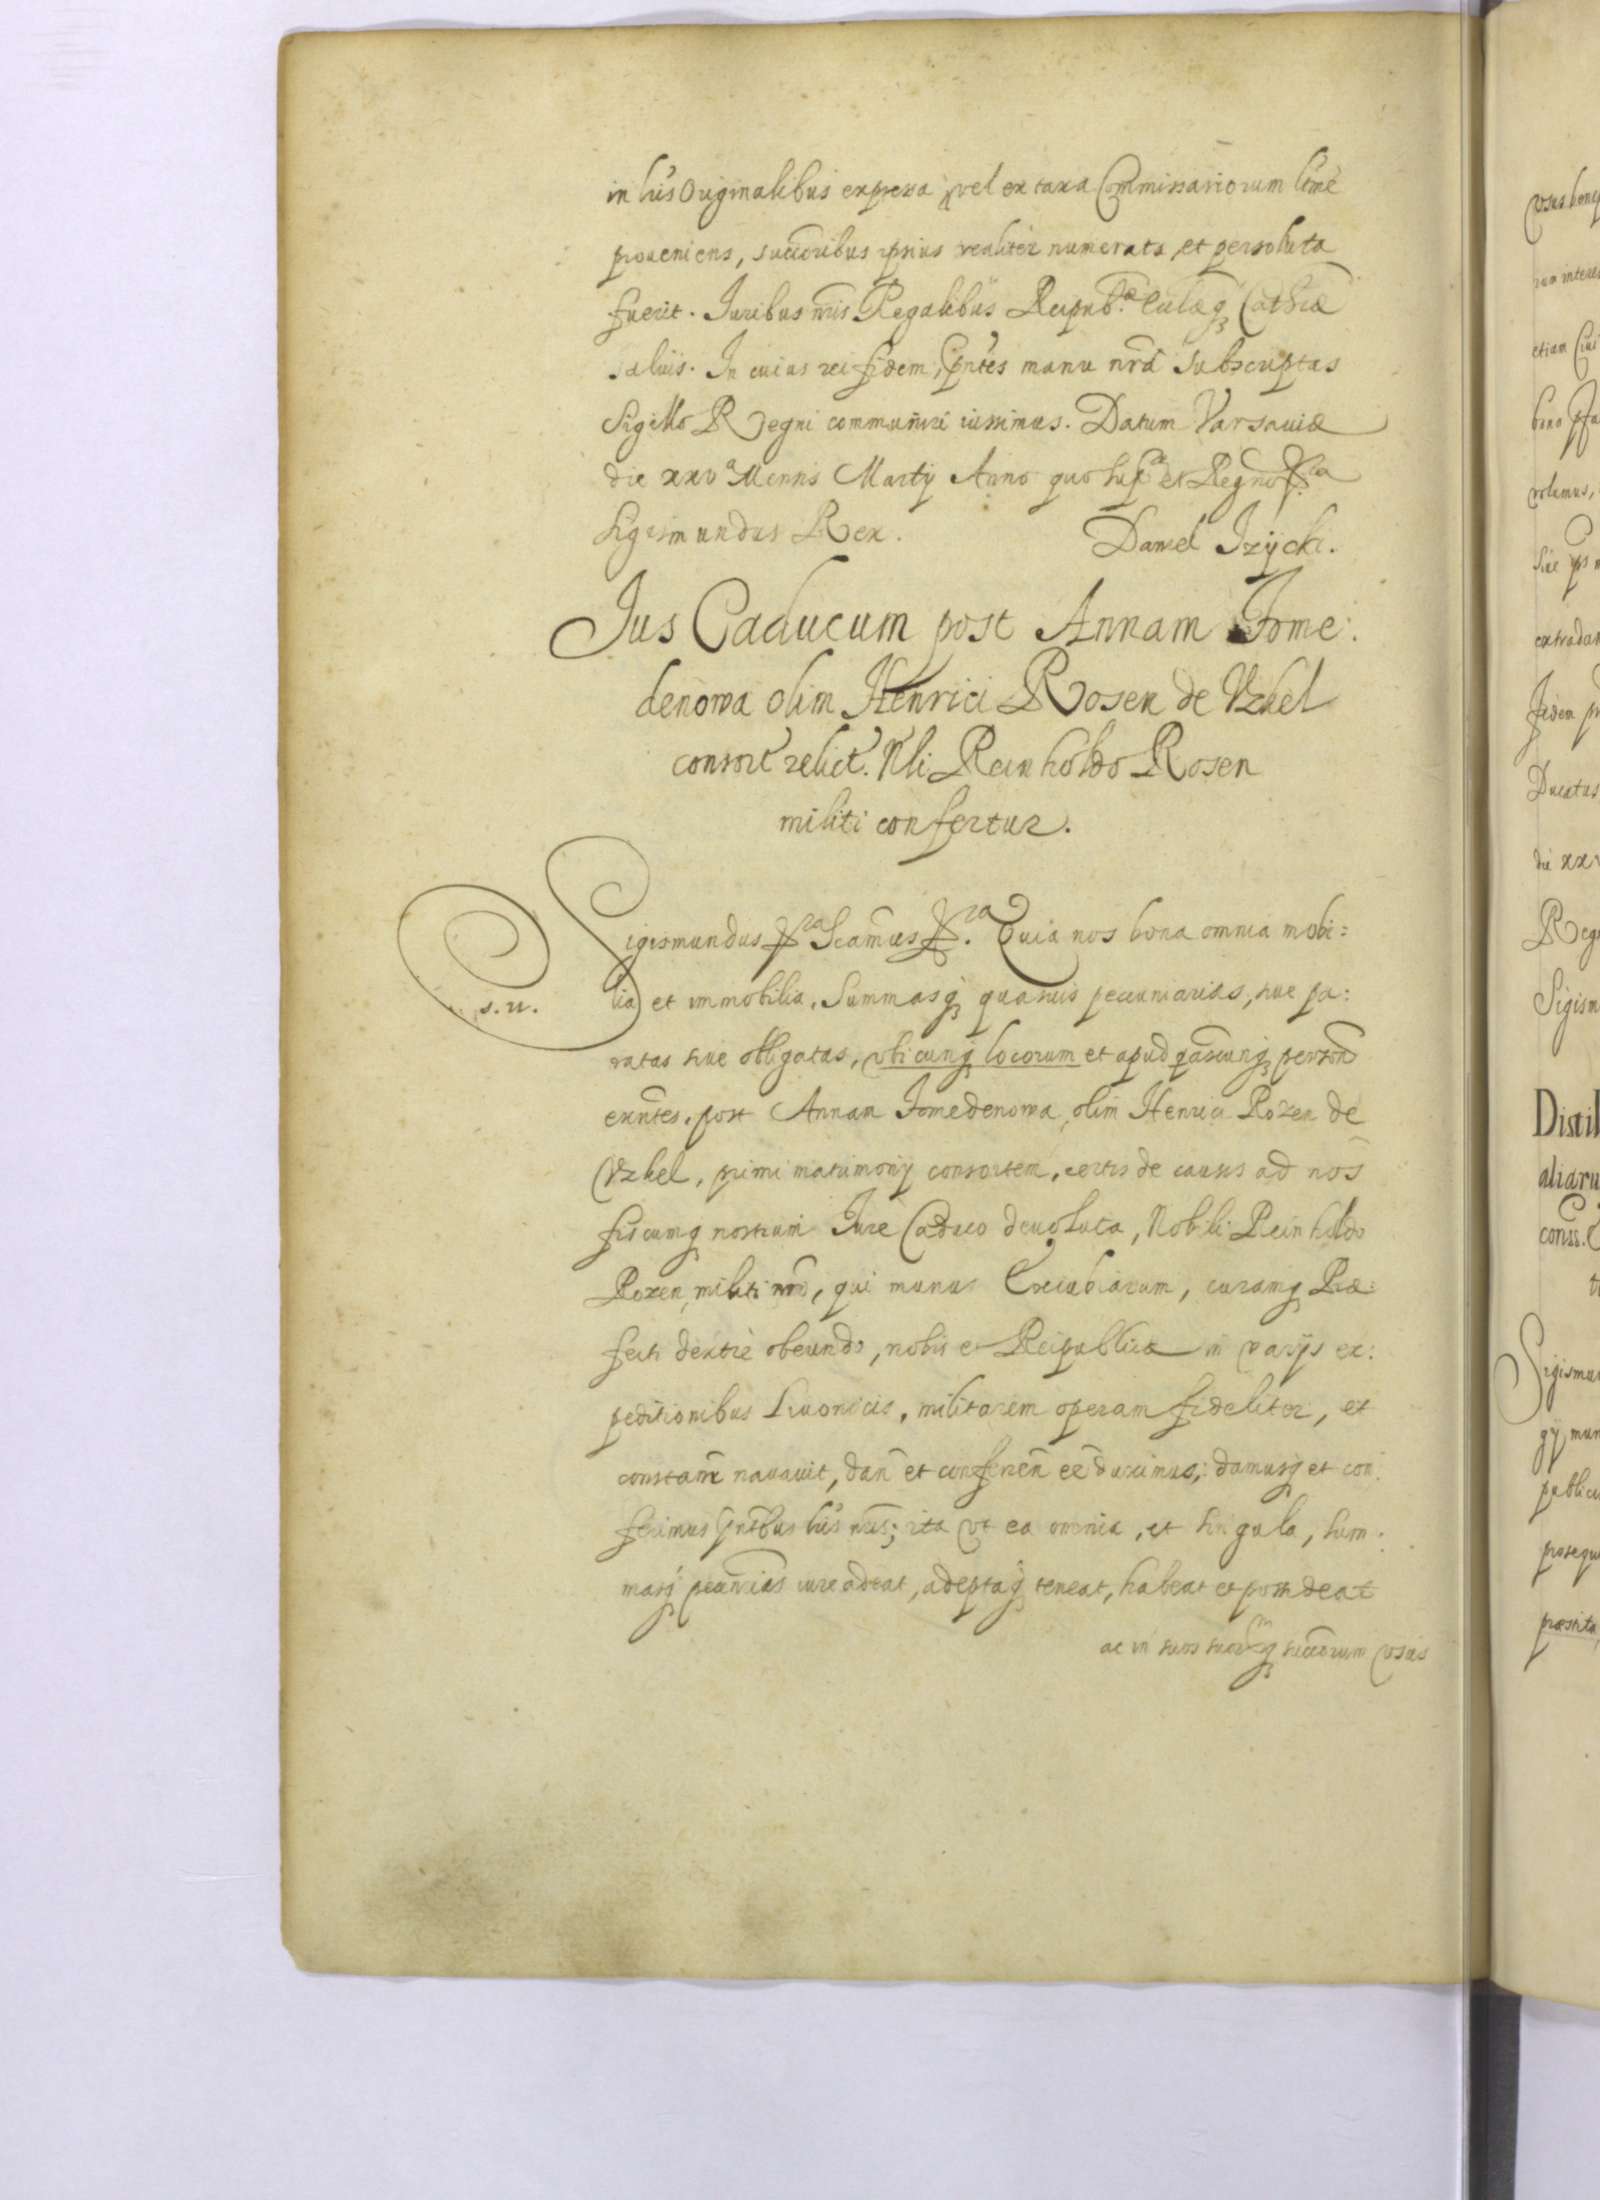 in lris Originalibus expressa, vel ex taxa Commissariorum ltime
proueniens, succoribus ipsius realiter numerata et persoluta
fuerit. Iuribus nris Regalibus Reipub. Eccliaeq Cathcae
saluis. In cuius rei fidem, pntes manu nra subscriptas
Sigillo Regni communiri iussimus. Datum Varsauiae
die xxv Mensis Martij Anno quo supra et Regno
Sigismundus Rex. Daniel Izÿcki.
Jus Caducum post Annam Tome:
denowa olim Henrici Rosen de Vzkel
consort relict. Nli Reinholdo Rosen
militi confertur.
Sigismundus Scamus. Quia nos bona omnia mobi:
s.n. lia et immobilia, Summasq quasuis pecuniarias, siue pa:
ratas siue obligatas, vbicunq locorum et apud qascunq person
exntes, post Annam Tomedenowa, olim Henrici Rozen de
Vzkel, primi matrimonij consortem, certis de causis ad nos
fiscumq nostrum Iure Caduco deuoluta, Nobili Reinholdo
Rozen, militi nro, qui munus Excubiarum, curamq Prae:
fecti dextrè obeundo, nobis et Reipublicae in varijs ex:
peditionibus Liuonicis, militarem operam fideliter, et
constanr nauauit, dan et conferen ee duximus; damusq et con:
ferimus pntibus lris nris; ita vt ea omnia, et singula, sum:
masq pecunrias iure adeat, adeptaq teneat, habeat et possideat
ac in suos suorq succorum vsus